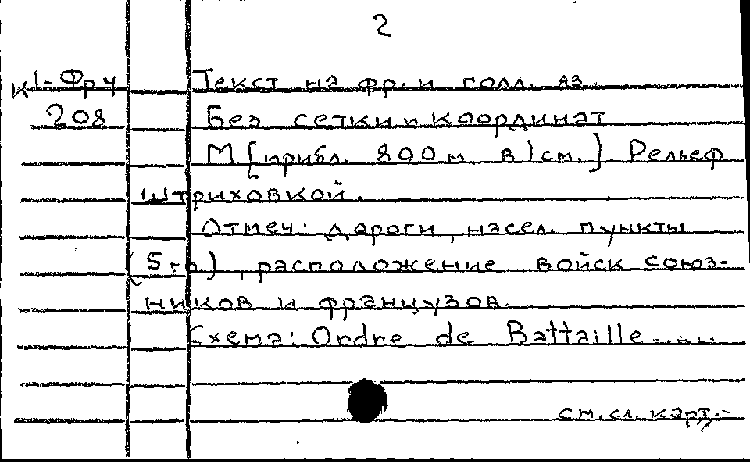 2
К 1-Фру Текст на фр. и голл. яз.
208 Без сетки и координат
М [прибл. 800 м. в 1 см.] Рельеф
штриховкой.
Отмеч: дороги, насел. пункты
(5-ть), расположение войск союз-
ников и французов.
Схема: Ordre de Battaille.....
см. сл. карт.